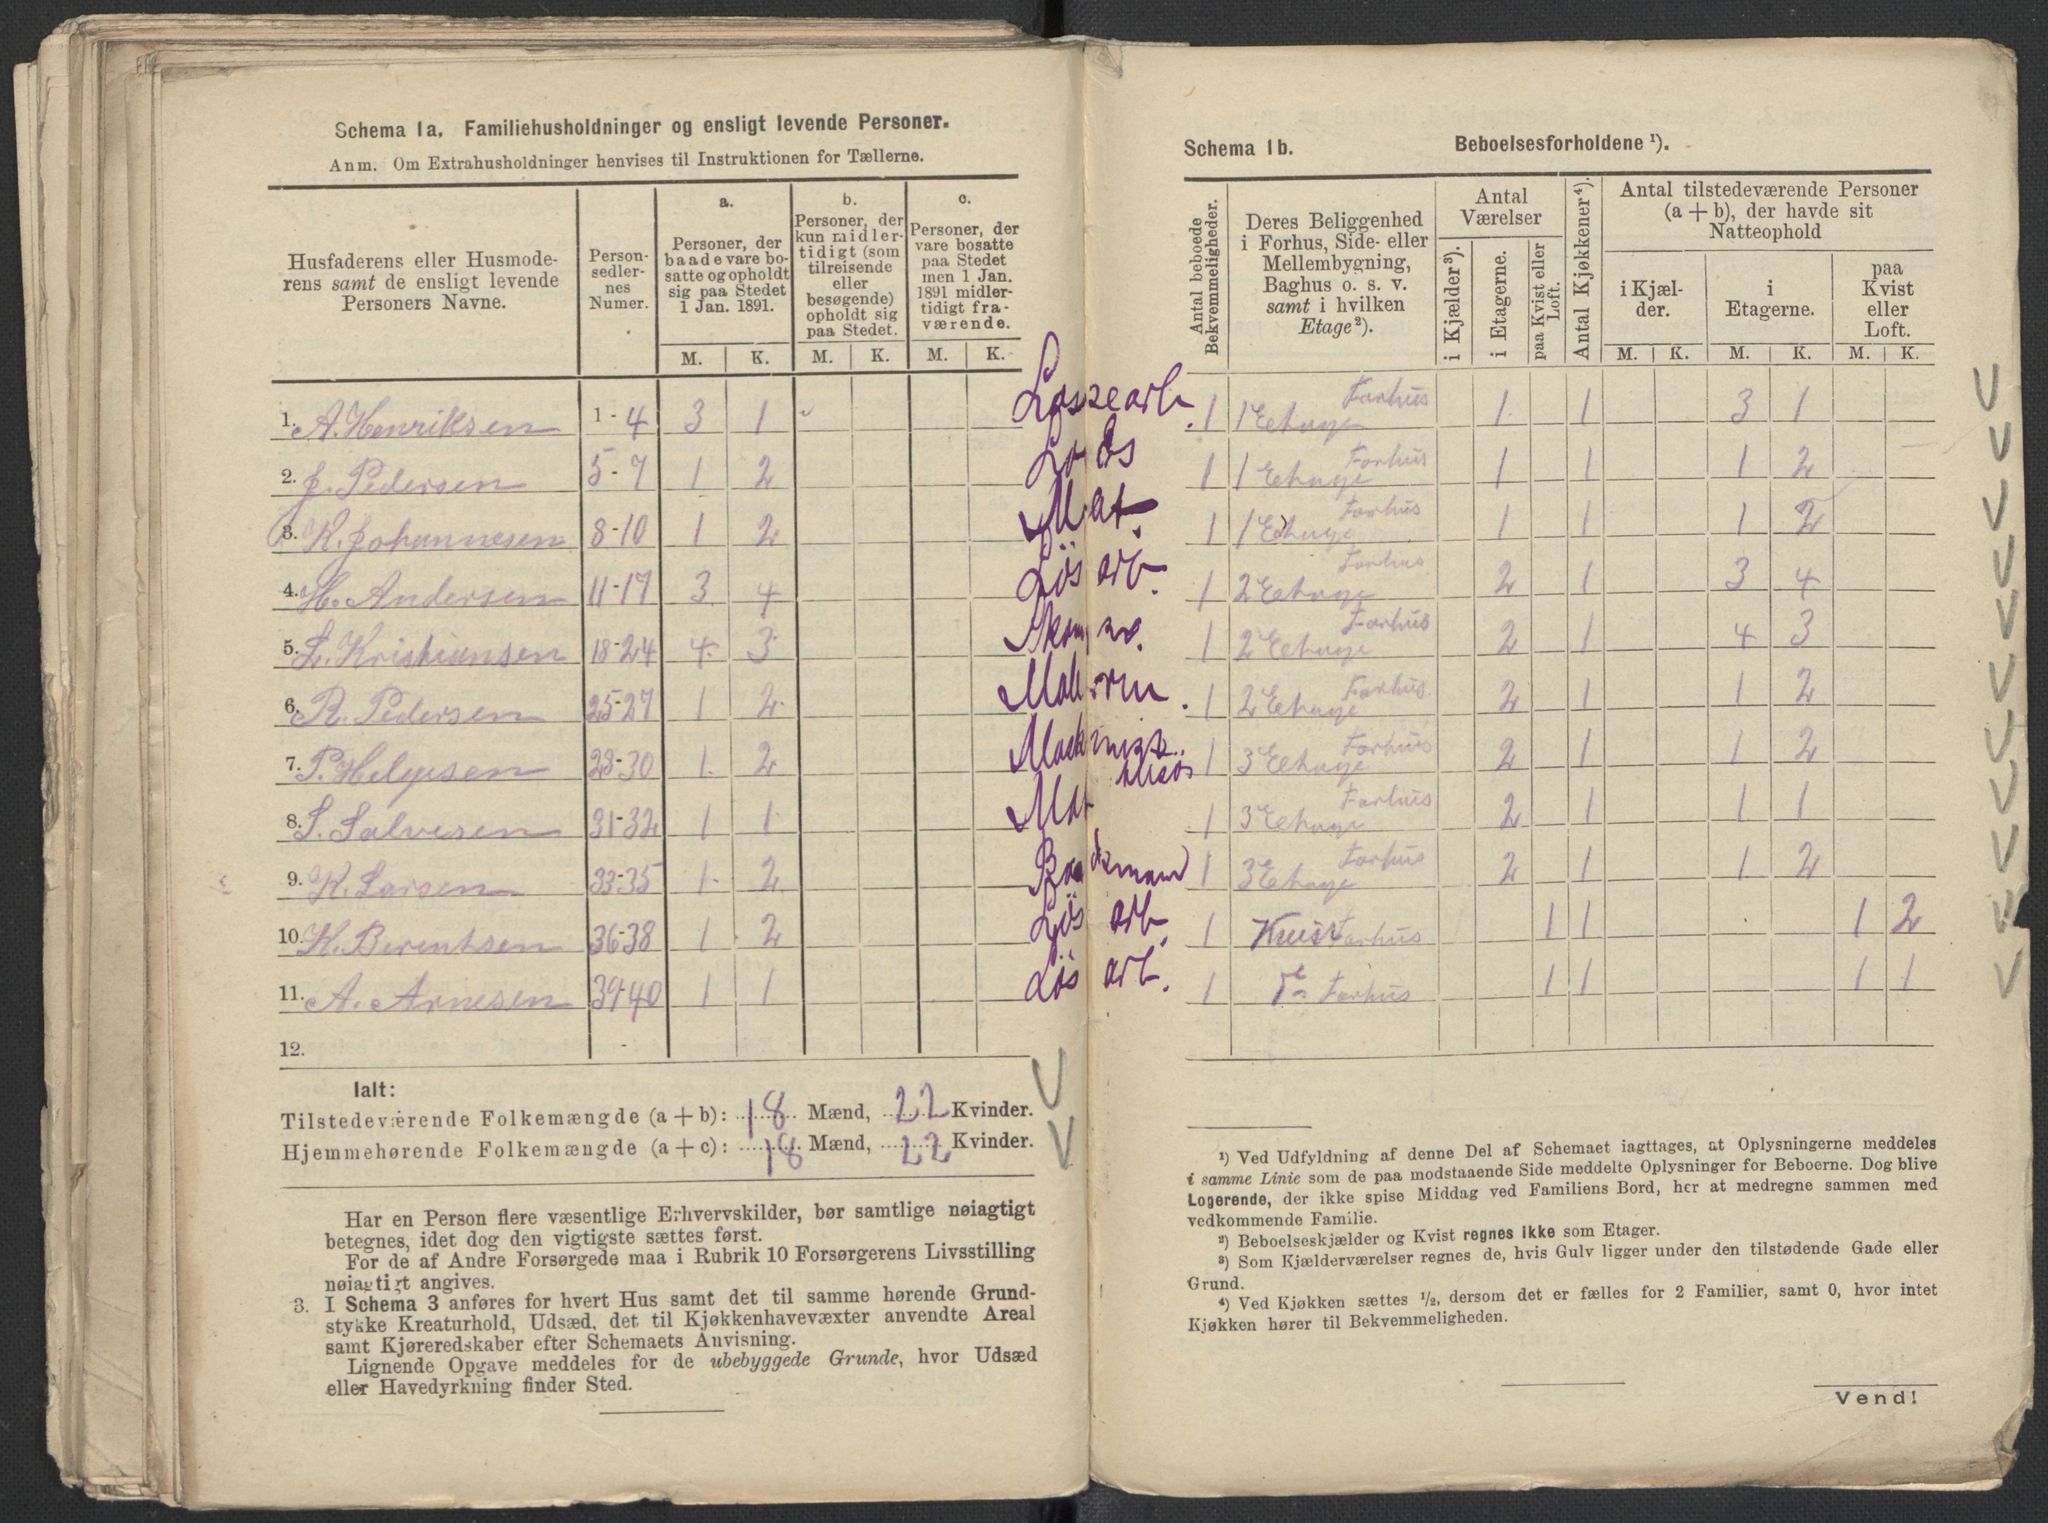 Schema 1a. Familiehusholdninger og ensligt levende Personer.
Anm. Om Extrahusholdninger henvises til Instruktionen for Tællerne.
Husfaderens eller Husmode-
rens samt de ensligt levende
Personers Navne.
Person-
sedler-
nes
Numer.
a.
Personer, der
baade vare bo-
satte og opholdt
sig paa Stedet
1 Jan. 1891.
b.
Personer, der
kun midler-
tidigt (som
tilreisende
eller
besøgende)
opholdt sig
paa Stedet.
c.
Personer, der
vare bosatte
paa Stedet
men 1 Jan.
1891 midler-
tidigt fra-
værende.
M. K. M. K. M. K.
1. A. Henriksen 1-4 3 1
2. J. Pedersen 5-7 1 2
3. K. Johannesen 8-10 1 2 Mat.
4. H. Andersen 11-17 3 4 Løsarb.
5. L. Kristiansen 18-24 4 3
6. R. Pedersen 25-27 1 2
7. P. Helgesen 28-30 1 2
8. S. Salvesen 31-32 1 1 Mat
9. K. Larsen 33-35 1 2 Baadsmand
10. K. Berentsen 36-38 1 2 Løsarb.
11. A. Arnesen 39-40 1 1 Løsarb.
12. -
Ialt:
Tilstedeværende Folkemængde (a + b): 18 Mænd, 22 Kvinder.
Hjemmehørende Folkemængde (a + c): 18 Mænd, 22 Kvinder.
Har en Person flere væsentlige Erhvervskilder, bør samtlige nøiagtigt
betegnes, idet dog den vigtigste sættes først.
For de af Andre Forsørgede maa i Rubrik 10 Forsørgerens Livsstilling
nøiagtigt angives.
3. I Schema 3 anføres for hvert Hus samt det til samme hørende Grund-
stykke Kreaturhold, Udsæd, det til Kjøkkenhavevæxter anvendte Areal
samt Kjøreredskaber efter Schemaets Anvisning.
Lignende Opgave meddeles for de ubebyggede Grunde, hvor Udsæd
eller Havedyrkning finder Sted.
Schema 1b. Beboelsesforholdene ¹).
Antal beboede
Bekvemmeligheder.
Deres Beliggenhed
i Forhus, Side- eller
Mellembygning,
Baghus o. s. v.
samt i hvilken
Etage ²).
Antal
Værelser
i Kjælder ³).
i Etagerne.
paa Kvist eller
Loft.
Antal Kjøkkener ⁴).
Antal tilstedeværende Personer
(a + b), der havde sit
Natteophold
i Kjæl-
der.
i
Etagerne.
paa
Kvist
eller
Loft.
M. K. M. K. M. K.
1 1 Ethage Forhus 1 1 3 1
1 1 Ethage Forhus 1 1 1 2
1 1 Ethage Forhus 1 1 1 2
1 2 Ethage Forhus 2 1 3 4
1 2 Ethage Forhus 2 1 4 3
1 2 Ethage Forhus 2 1 1 2
1 3 Ethage Forhus 2 1 1 2
1 3 Ethage Forhus 2 1 1 1
1 3 Ethage Forhus 2 1 1 2
1 Kvist Forhus 1 1 1 2
1 Forhus 1 1 1 1
¹) Ved Udfyldning af denne Del af Schemaet iagttages, at Oplysningerne meddeles
i samme Linie som de paa modstaaende Side meddelte Oplysninger for Beboerne. Dog blive
Logerende, der ikke spise Middag ved Familiens Bord, her at medregne sammen med
vedkommende Familie.
²) Beboelseskjælder og Kvist regnes ikke som Etager.
³) Som Kjælderværelser regnes de, hvis Gulv ligger under den tilstødende Gade eller
Grund.
⁴) Ved Kjøkken sættes ½, dersom det er fælles for 2 Familier, samt 0, hvor intet
Kjøkken hører til Bekvemmeligheden.
Vend!